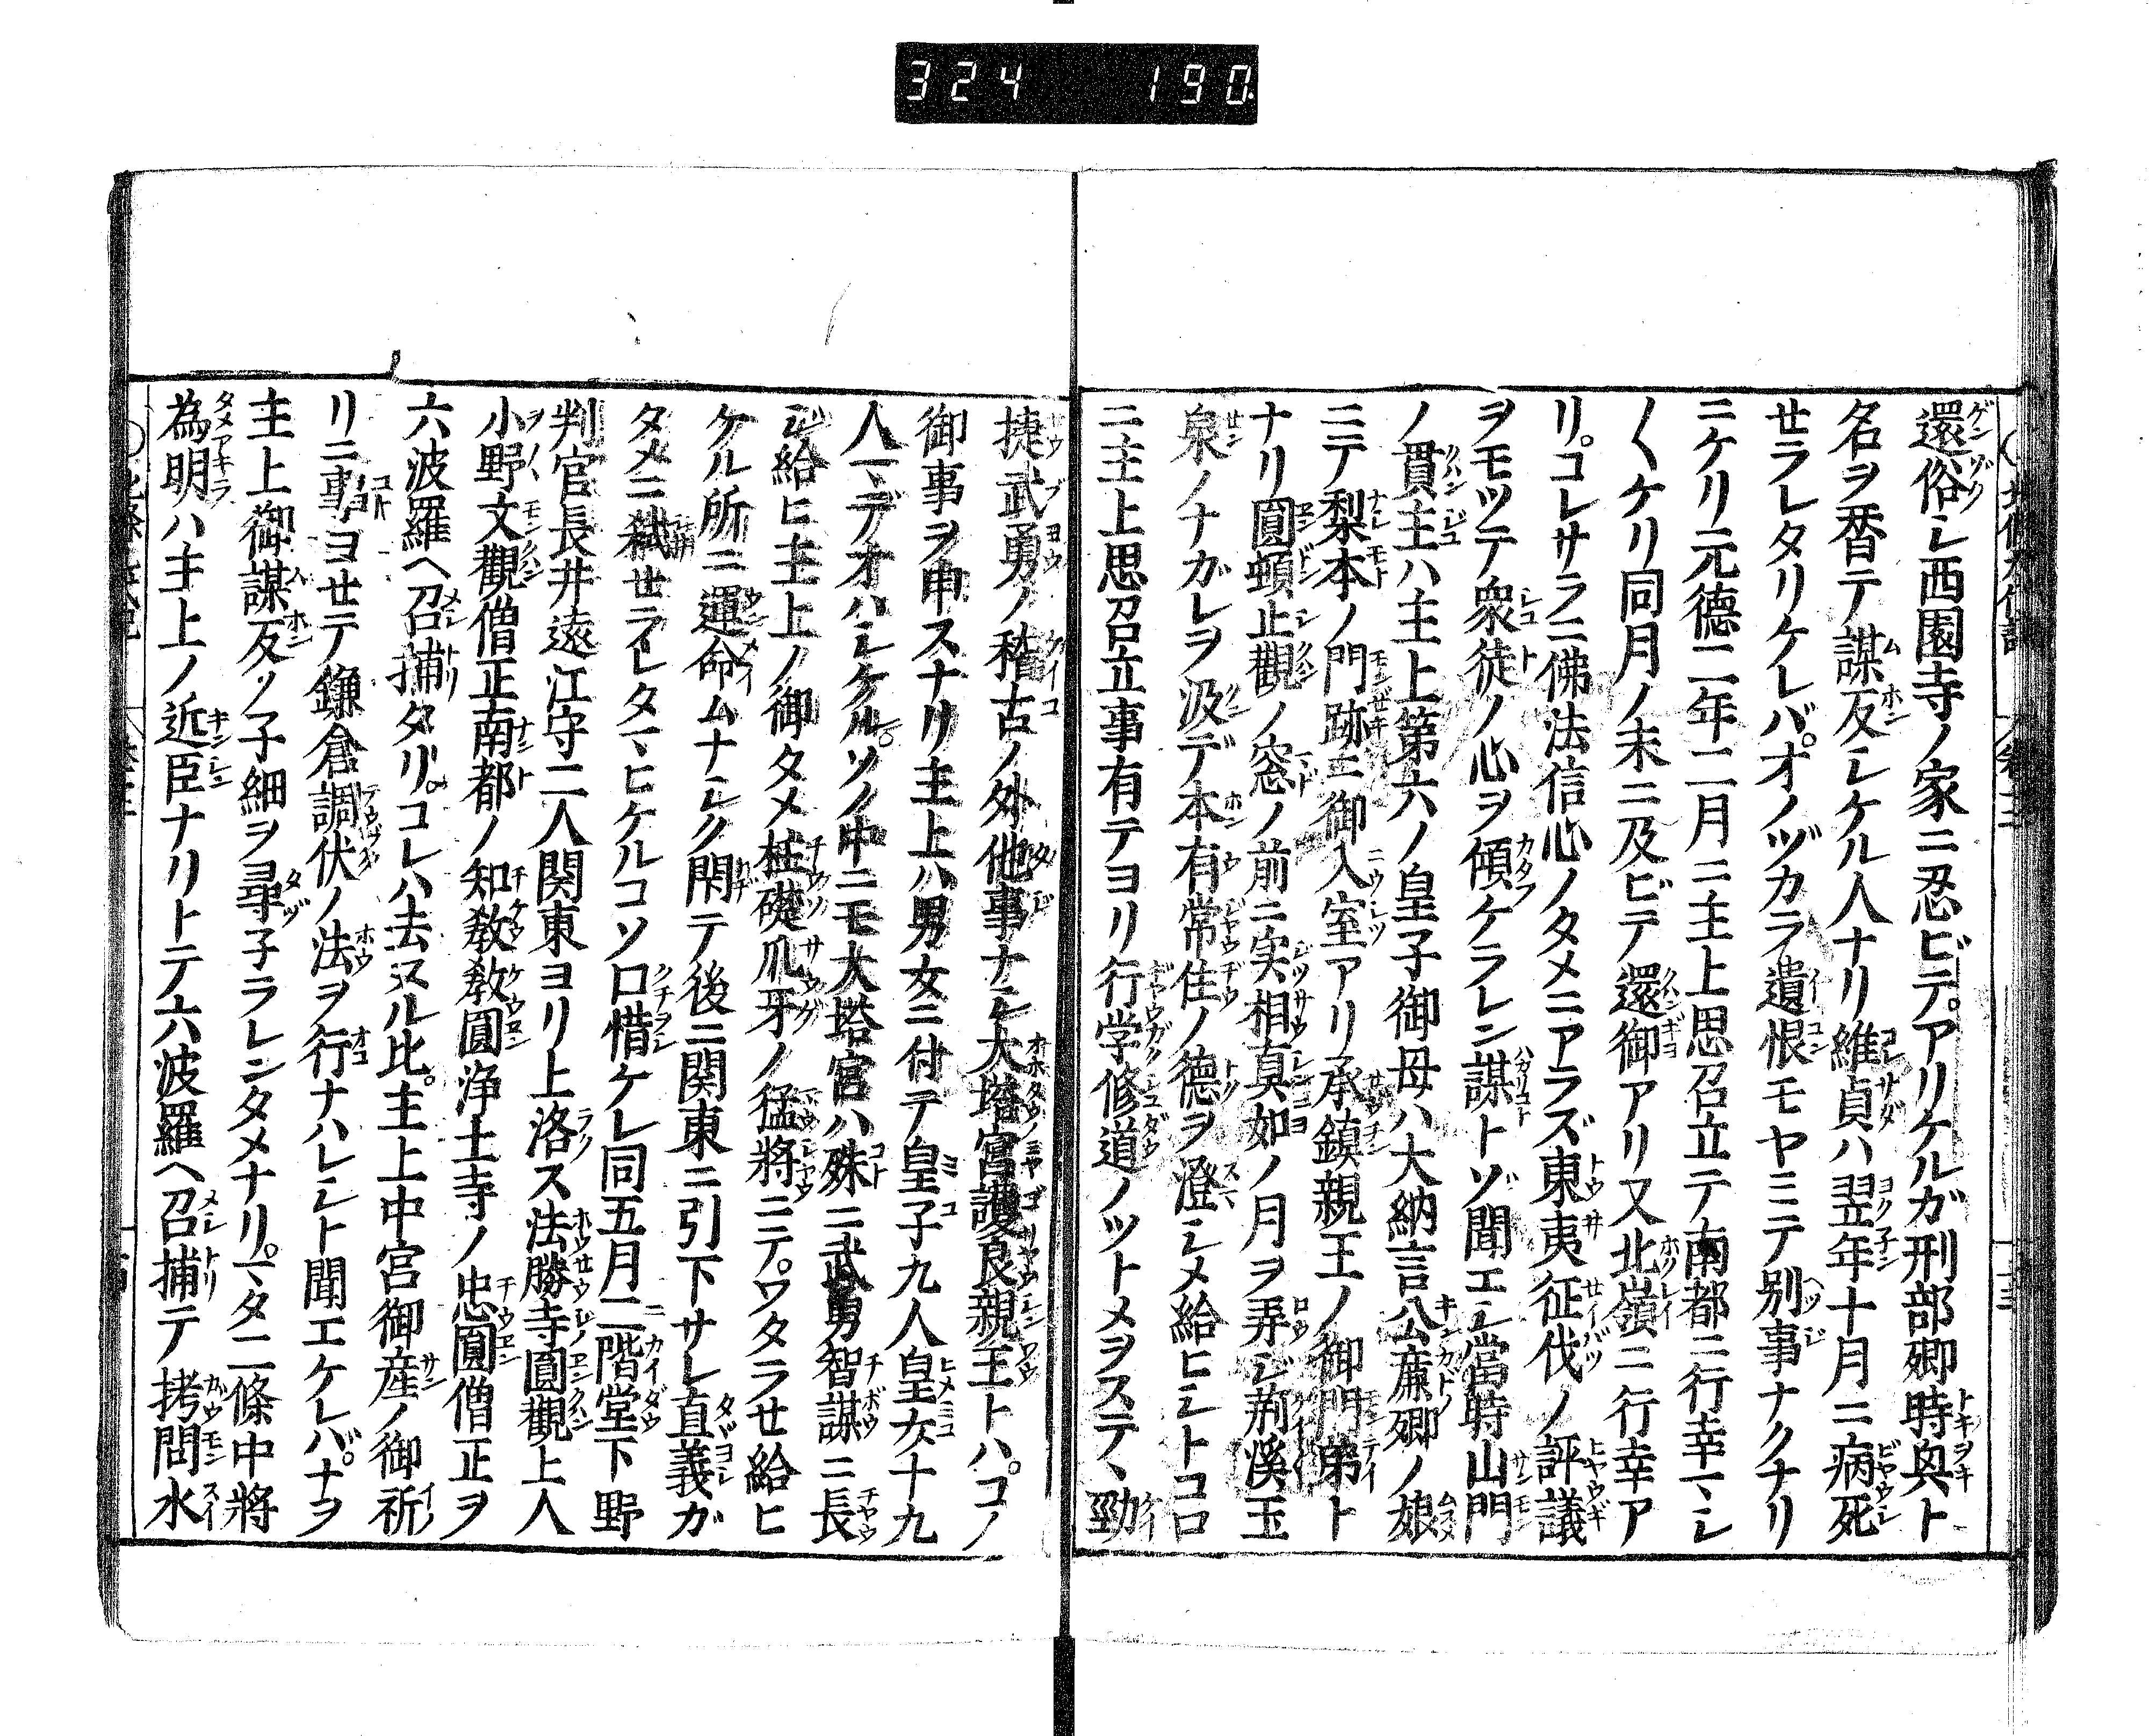 324 190
還俗シ西園寺ノ家ニ忍ビテアリケルガ刑部卿時奥ト
名ヲ替テ謀反シケル人ナリ維貞ハ翌年十月ニ病死
セラレタリケレバオノヅカラ遺恨モヤミテ別事ナクナリ
ニケリ元德二年二月ニ主上思召立テ南都ニ行幸マシ
〱ケリ同月ノ末ニ及ビテ還御アリ又北嶺ニ行幸ア
リコレサラニ佛法信心ノタメニアラズ東夷征伐ノ評議
ヲモツテ衆徒ノ心ヲ傾ケラレン謀トゾ聞エシ當時山門
ノ貫主ハ主上第六ノ皇子御母ハ大納言公廉卿ノ娘
ニテ梨本ノ門跡ニ御入室アリ承鎮親王ノ御門弟ト
ナリ圓頓止觀ノ窓ノ前ニ実相真如ノ月ヲ弄ジ荊溪玉
泉ノナガレヲ汲デ本有常住ノ德ヲ澄シメ給ヒシトコロ
ニ主上思召立事有テヨリ行学修道ノツトメヲステヽ勁
捷武勇ノ稽古ノ外他事ナシ大塔宮護良親王トハコノ
御事ヲ申スナリ主上ハ男女ニ付テ皇子九人皇女十九
人マデオハシケルソノ中ニモ大塔宮ハ殊ニ武勇智謀ニ長
ジ給ヒ主上ノ御タメ柱礎爪牙ノ猛將ニテワタラセ給ヒ
ケル所ニ運命ムナシク閇テ後ニ関東ニ引下サレ直義ガ
タメニ弑セラレタマヒケルコソ口惜ケレ同五月二階堂下野
判官長井遠江守二人関東ヨリ上洛ス法勝寺圓觀上人
小野文觀僧正南都ノ知敎敎圓浄土寺ノ忠圓僧正ヲ
六波羅ヘ召捕タリコレハ去ヌル比主上中宮御産ノ御祈
リニ事ヨセテ鎌倉調伏ノ法ヲ行ナハレシト聞エケレバナヲ
主上御謀反ノ子細ヲ尋子ラレンタメナリマタ二條中將
為明ハ主上ノ近臣ナリトテ六波羅ヘ召捕テ拷問水